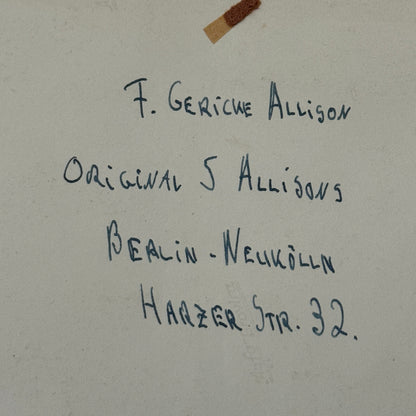 F. Gericke Allison
Original 5 Allisons
Berlin - Neukölln
Harzer Str. 32.